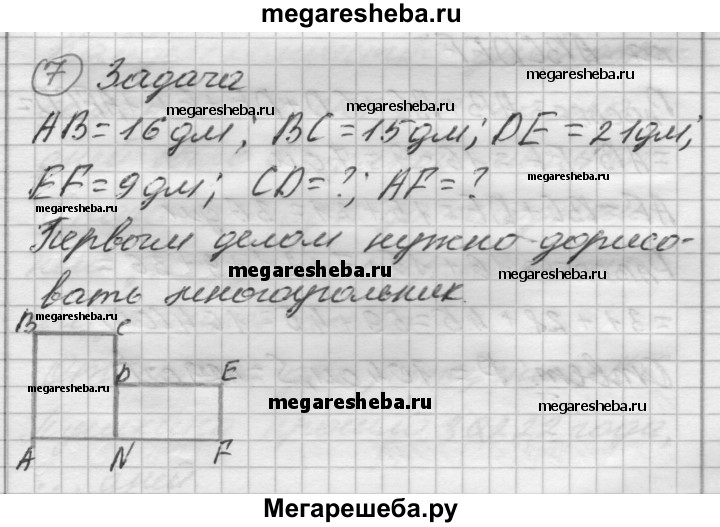 megaresheba.ru
7 Задача
megaresheba.ru
megaresheba.ru
megaresheba.ru
AB=16дм; BC=15дм; DE=21дм;
EF=9дм; CD=?; AF=?
megaresheba.ru
megaresheba.ru
Первым делом нужно дорисо-
megaresheba.ru
megaresheba.ru
вать многоугольник.
megaresheba.ru
B C
D E
megaresheba.ru
megaresheba.ru
megaresheba.ru
A N F
Мегарешеба.ру